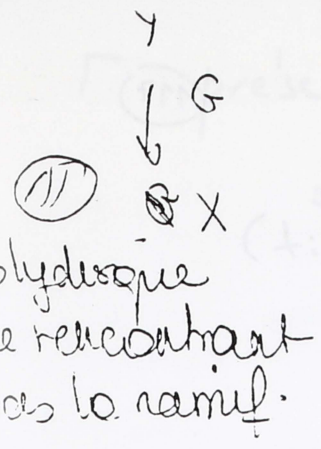 Y
G
X
olydisque
e rencontrant
as la ramif.